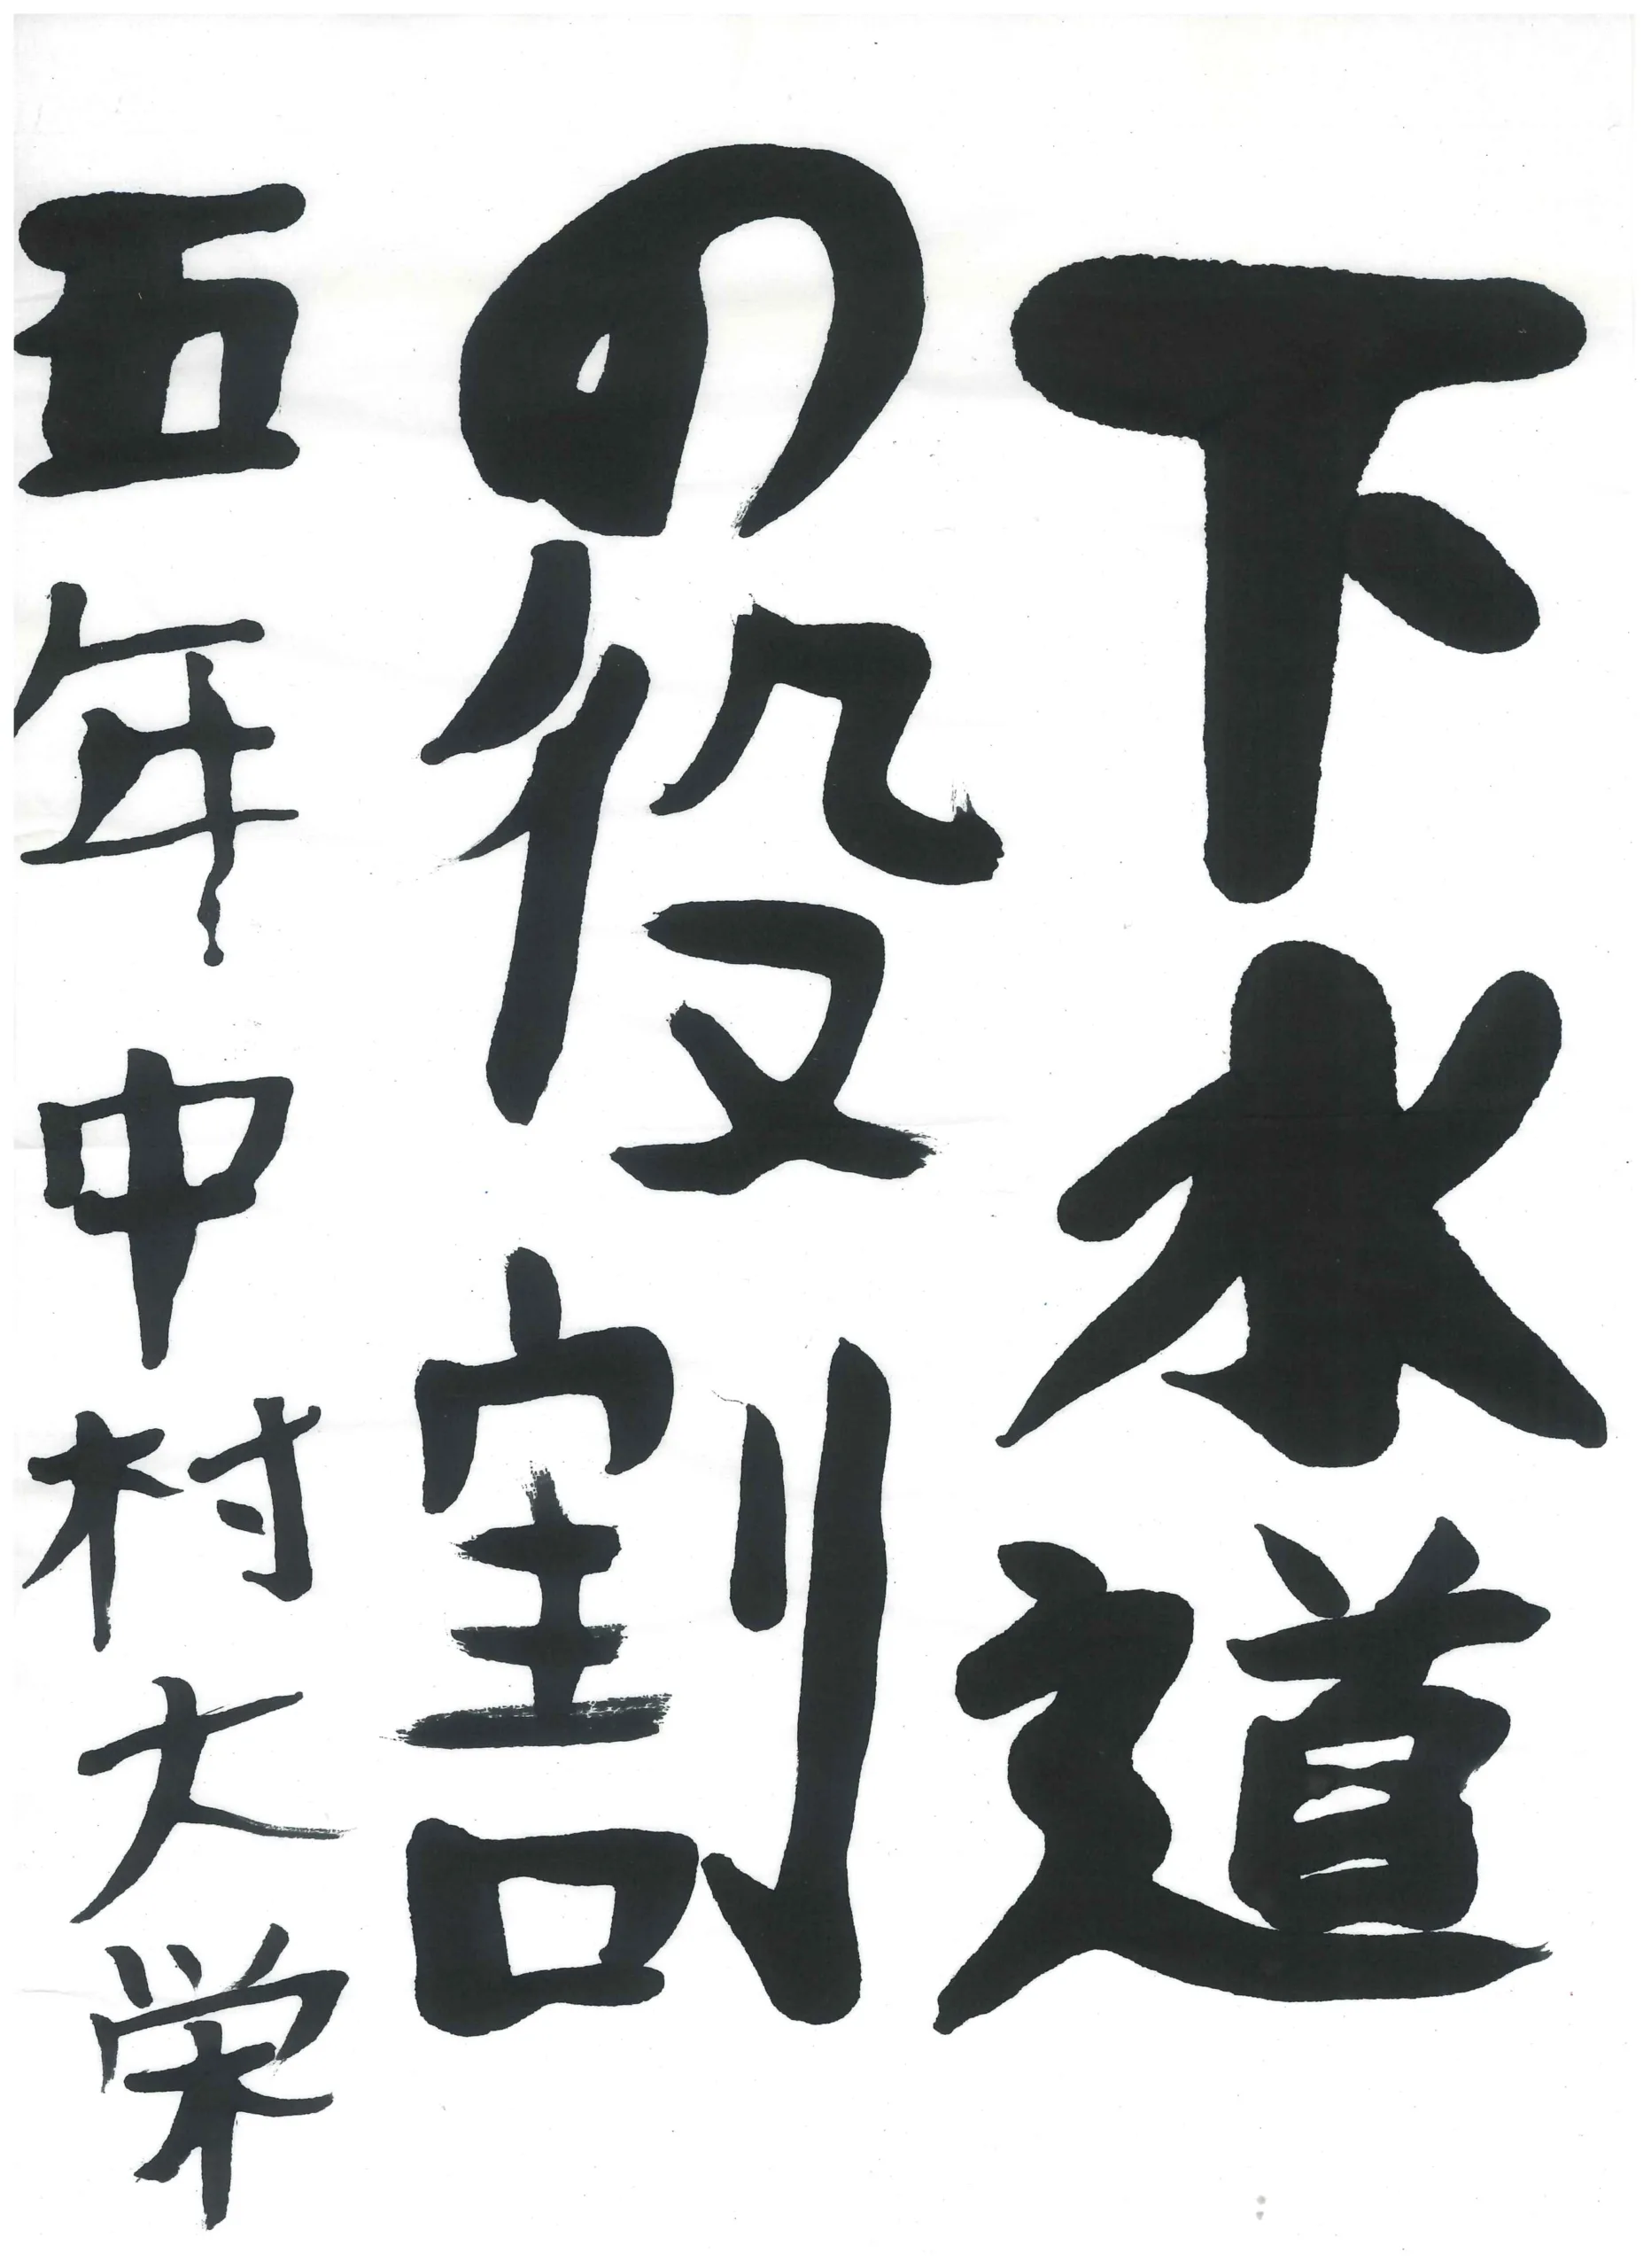 下水道
の役割
五年中村大栄